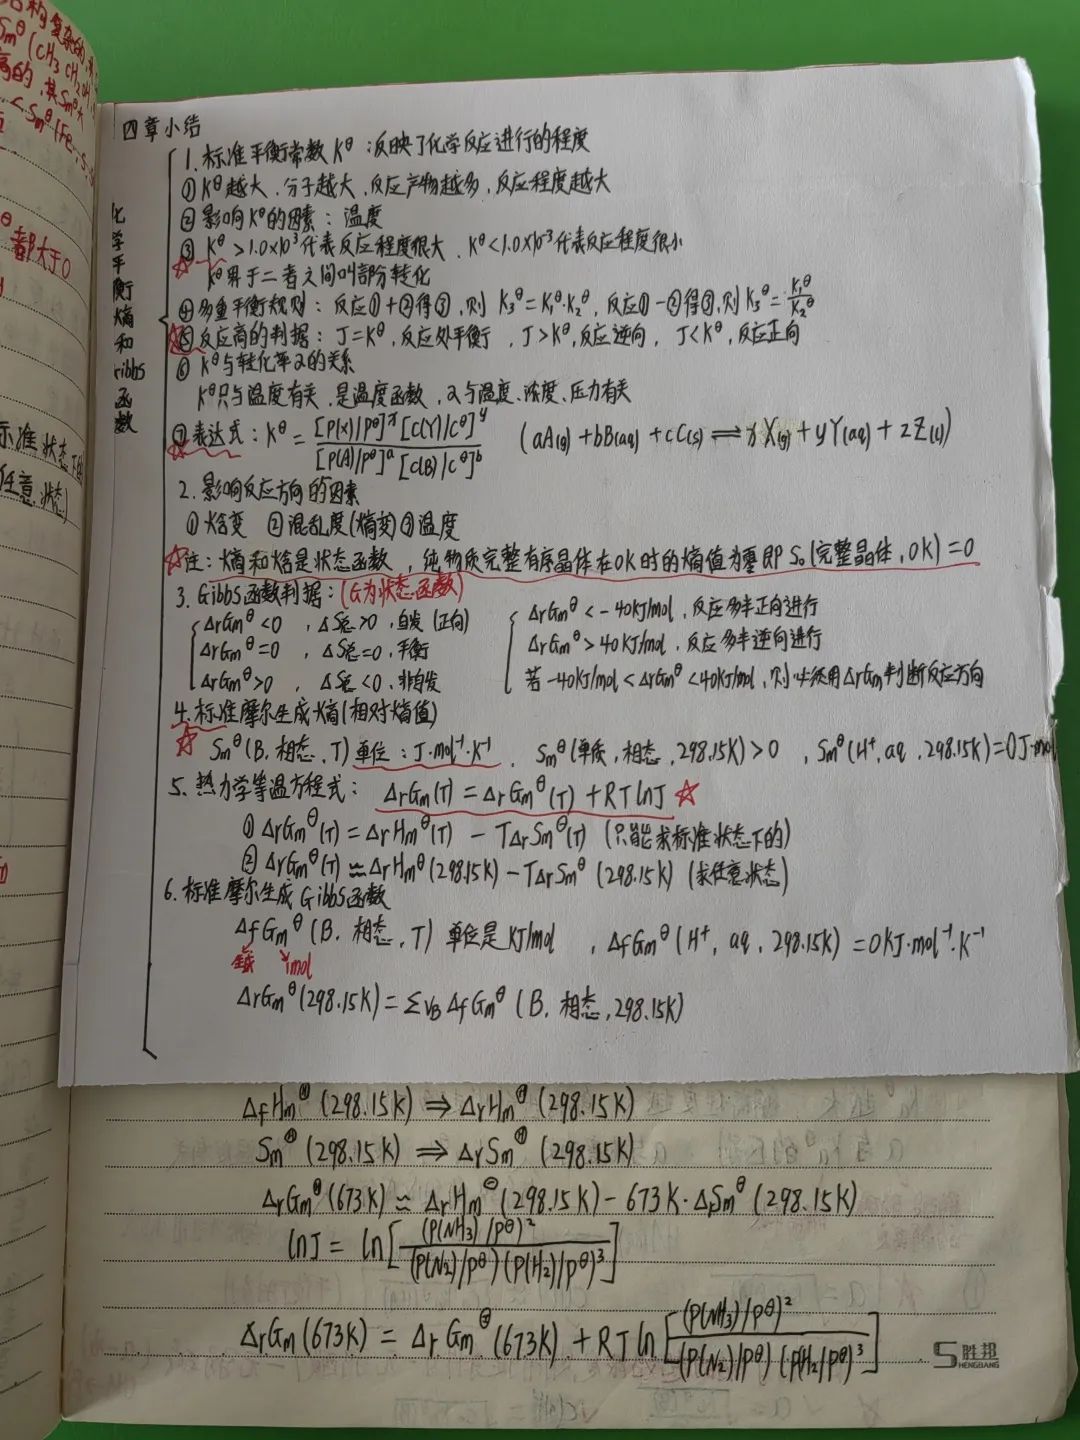 结构复杂的,其
Smθ(CH3CH2OH
高的,其Smθ大
<Smθ(Fe,s,
θ都大于0
标准状态下的
任意,状态)
四章小结
化学平衡熵和Gibbs函数
1.标准平衡常数Kθ:反映了化学反应进行的程度
①Kθ越大、分子越大,反应产物越多,反应程度越大
②影响Kθ的因素:温度
☆③Kθ>1.0×10³代表反应程度很大、Kθ<1.0×10⁻³代表反应程度很小
Kθ界于二者之间叫部分转化
④多重平衡规则:反应①+②得③,则K₃θ=K₁θ·K₂θ,反应①-②得③,则K₃θ=K₁θ/K₂θ
☆⑤反应商的判据:J=Kθ,反应处平衡,J>Kθ,反应逆向,J<Kθ,反应正向
⑥Kθ与转化率α的关系
Kθ只与温度有关,是温度函数,α与温度、浓度、压力有关
☆⑦表达式:Kθ=[P(X)/Pθ]ˣ[C(Y)/Cθ]ʸ/[P(A)/Pθ]ᵃ[C(B)/Cθ]ᵇ (aA(g)+bB(aq)+cC(s)⇌xX(g)+yY(aq)+zZ(l))
2.影响反应方向的因素
①焓变 ②混乱度(熵变)③温度
☆注:熵和焓是状态函数,纯物质完整有序晶体在0K时的熵值为零即S₀(完整晶体,0K)=0
3.Gibbs函数判据:(G为状态函数)
ΔrGmθ<0,ΔS总>0,自发(正向) ΔrGmθ<-40KJ/mol,反应多半正向进行
ΔrGmθ=0,ΔS总=0,平衡 ΔrGmθ>40KJ/mol,反应多半逆向进行
ΔrGmθ>0,ΔS总<0,非自发 若-40KJ/mol<ΔrGmθ<40KJ/mol,则必须用ΔrGm判断反应方向
4.标准摩尔生成熵(相对熵值)
☆Smθ(B,相态,T)单位:J·mol⁻¹·K⁻¹、Smθ(单质,相态,298.15K)>0,Smθ(H⁺,aq,298.15K)=0J·mol
5.热力学等温方程式:ΔrGm(T)=ΔrGmθ(T)+RTlnJ☆
①ΔrGmθ(T)=ΔrHmθ(T)-TΔrSmθ(T)(只能求标准状态下的)
②ΔrGmθ(T)≈ΔrHmθ(298.15K)-TΔrSmθ(298.15K)(求任意状态)
6.标准摩尔生成Gibbs函数
ΔfGmθ(B,相态,T)单位是KJ/mol,ΔfGmθ(H⁺,aq,298.15K)=0KJ·mol⁻¹·K⁻¹
1mol
ΔrGmθ(298.15K)=ΣνBΔfGmθ(B,相态,298.15K)
ΔfHmθ(298.15K)⇒ΔrHmθ(298.15K)
Smθ(298.15K)⇒ΔrSmθ(298.15K)
ΔrGmθ(673K)≈ΔrHmθ(298.15K)-673K·ΔrSmθ(298.15K)
lnJ=ln[(P(NH₃)/Pθ)²/(P(N₂)/Pθ)(P(H₂)/Pθ)³]
ΔrGm(673K)=ΔrGmθ(673K)+RTln[(P(NH₃)/Pθ)²/(P(N₂)/Pθ)(P(H₂)/Pθ)³]
胜邦
SHENGBANG